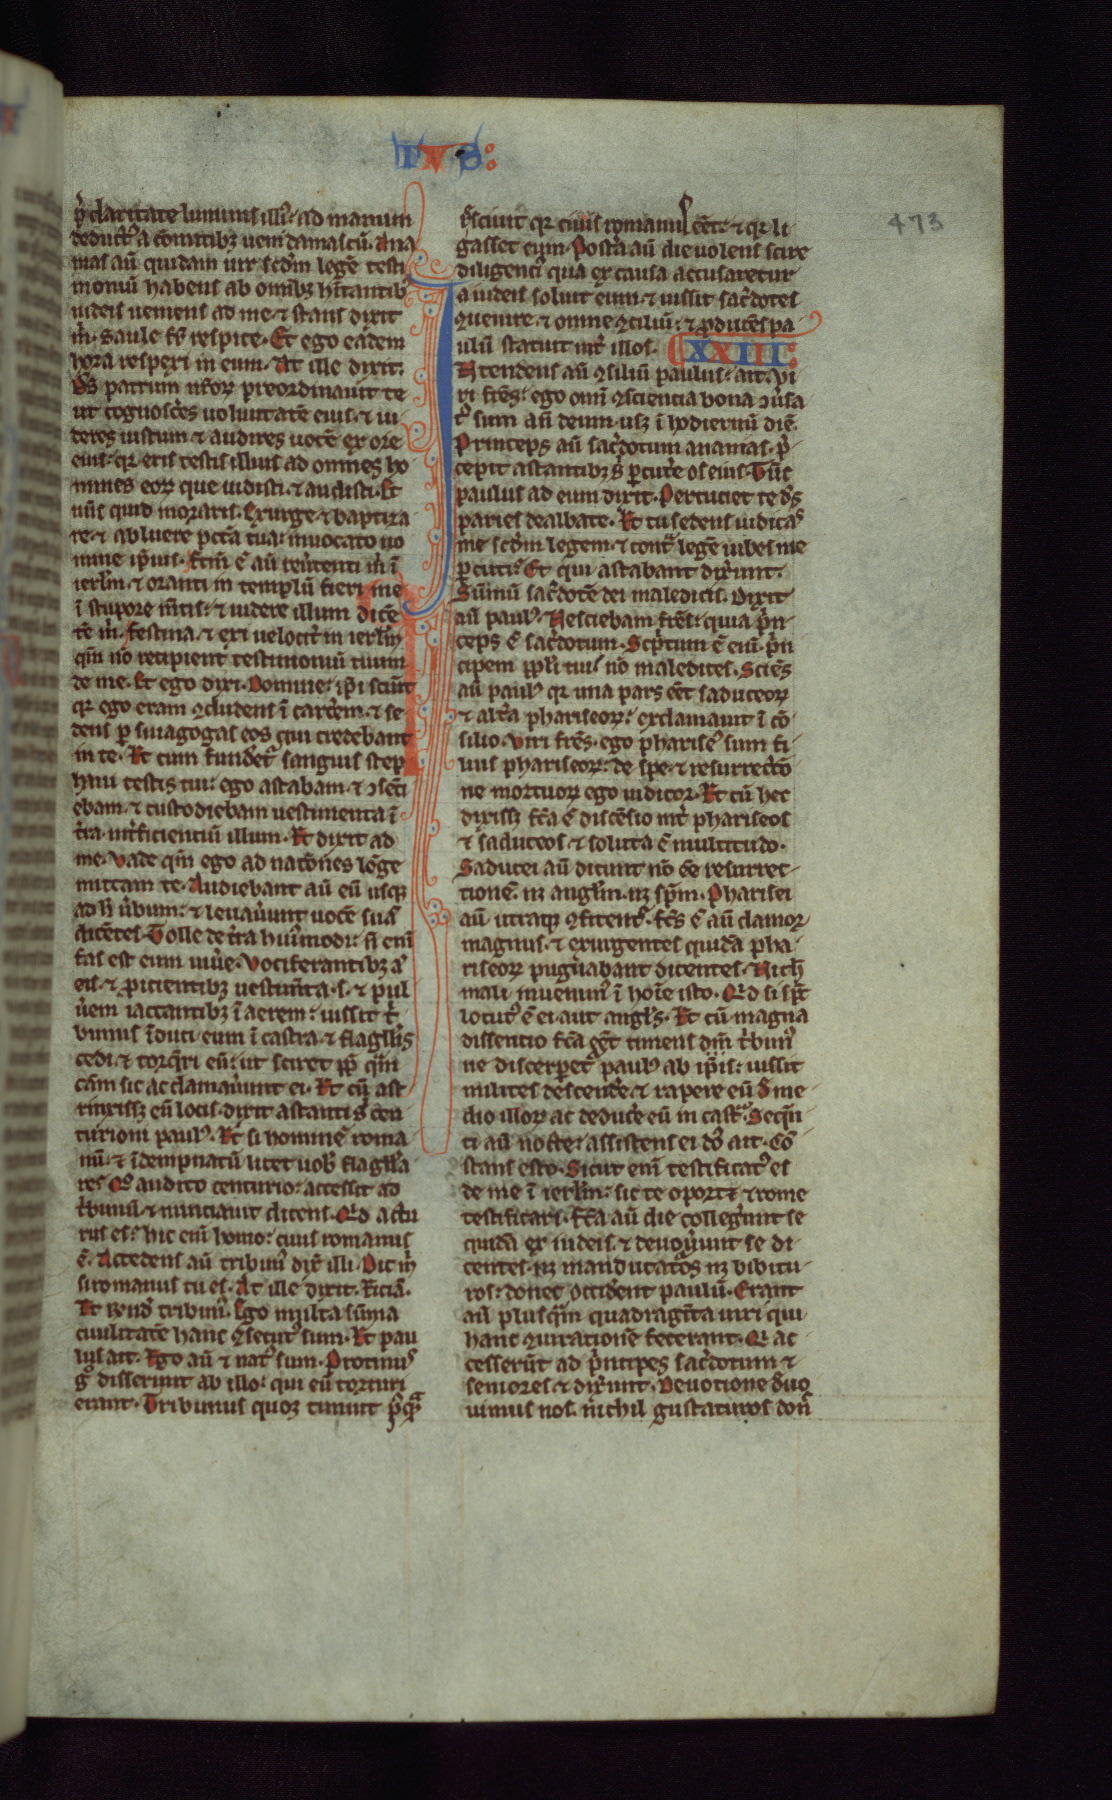 TVS:
473
p̄ claritate luminis illiꝰ: ad manum
deductꝰ a comitibꝫ ueni damascū. Ana
nias aū quidam uir scd̄m legē testi
moniū habens ab om̄ibꝫ hītantibꝫ
iudeis ueniens ad me ⁊ stans dixit
m̄. Saule fr̄ respice. Et ego eadem
hora respexi in eum. At ille dixit.
Ds̄ patrum nr̄oꝝ preordinauit te
ut cognosceres uoluntatē eius. ⁊ ui
deres iustum ⁊ audires uocē ex ore
eius: qꝛ eris testis illius ad omnes ho
mines eoꝝ que uidisti. ⁊ audisti. Et
nūc quid moraris. Exurge ⁊ baptiza
re. ⁊ ablue pccā tua: inuocato no
mine ipsius. Fctm̄ ē aū reūtenti m̄ ī
ierlm̄. ⁊ oranti in templū fieri me
ī stupore m̄tis: ⁊ uidere illum dicē
tē m̄. Festina. ⁊ exi uelocit̄ in ierlm̄
qm̄ nō recipient testimoniū tuum
de me. Et ego dixi. Domine: ip̄i sciūt
qꝛ ego eram ꝯcludens ī carcēm. ⁊ ce
dens ꝑ sinagogas eos qui credebant
in te. Et cum funderet̄ sanguis step
hani testis tui: ego astabam. ⁊ ꝯsēti
ebam. ⁊ custodiebam uestimenta ī
t̄ra īterficientiū illum. Et dixit ad
me. Vade qm̄ ego ad natōnes lōge
mittam te. Audiebant aū eū usqꝫ
ad h̄ ūbum: ⁊ leuauūnt uocē suā
dicētes. Tolle de t̄ra huiꝰmodi: n̄ enī
fas est eum uiūe. Vociferantibꝫ aū
eis. ⁊ ꝓicientibꝫ uestim̄ta. s. ⁊ pul
ūem iactantibꝫ ī aerem: iussit t̄
bunus īduci eum ī castra. ⁊ flagell̄is
cedi. ⁊ torq̄ri eū: ut sciret ꝓp̄ qm̄
cām sic acclamauūnt ei. Et cū ast
rinxissꝫ eū loris. dixit astanti s̄ cen
turioni paulꝰ. Et si hominē roma
nū. ⁊ īdempnatū licet uob̄ flagella
re. Qō audito centurio: accessit ad
t̄bunū ⁊ nunciauit dicens. Qd̄ actu
rus es: hic enī homo: ciuis romanus
ē. Accedens aū tribunꝰ dix̄ illi. Dic m̄
si romanus tu es. At ille dixit. Eciā.
Et rn̄d tribunꝰ. Ego multa sūma
ciuilitatē hanc ꝯsecutꝰ sum. Et pau
lus ait. Ego aū ⁊ natꝰ sum. Protinus
gͦ disserunt ab illo: qui eū torturi
erant. Tribunus quoqꝫ timuit p̄qͣ
r̄sciuit qꝛ ciuis romanus eēt: ⁊ qꝛ li
gasset eum. Postā aū die uolens scire
diligenciꝰ qua ex causa accusaretur
a iudeis soluit eum. ⁊ iussit sac̄dotes
ꝯuenire. ⁊ omne ꝯciliū: ⁊ ꝓducens pa
ulū statuit int̄ illos. XXIII:
Intendens aū ꝯsiliū paulus: ait. Vi
ri fr̄es: ego om̄i ꝯsciencia bona ꝯūsa
tꝰ sum an̄ deum. usqꝫ ī hodiernū diē.
Princeps aū sac̄dotum ananias. p̄
cepit astantibꝫ s̄ ꝑcutē os eius. Tūc
paulus ad eum dixit. Percuciet te ds̄
paries dealbate. Et tu sedens iudicās
me scd̄m legem. ⁊ contͣ legē iubes me
ꝑcuti. Et qui astabant dixūnt.
Sūmū sac̄dotē dei maledicis. Dixit
aū paulꝰ. Nesciebam fr̄es: quia p̄n
ceps ē sac̄dotum. Scͥptum ē enī. p̄n
cipem pp̄li tui nō maledices. Sciēs
aū paulꝰ qꝛ una pars eēt saduceoꝝ
⁊ alt̄a phariseoꝝ: exclamauit ī cō
silio. Viri fr̄es. ego phariseꝰ sum fi
lius phariseoꝝ: de spe. ⁊ resurrectō
ne mortuoꝝ ego iudicor. Et cū hec
dixissꝫ fc̄a ē discēsio int̄ phariseos
⁊ saduceos. ⁊ soluta ē multitudo.
Saducei aū dicunt nō eē resurrec
tionē. nꝫ anglm̄. nꝫ sp̄m. Pharisei
aū. utraqꝫ ꝯfitentꝰ. Fc̄s ē aū clamor
magnus. ⁊ exurgentes quidā pha
riseoꝝ pugnabant dicentes. Nich̄
mali inuenimꝰ ī hoīe isto. Qd̄ si sp̄c
locutꝰ ē ei aut angl̄s. Et cū magna
dissentio fc̄a eēt timens dm̄ t̄bunꝰ
ne discerperet̄ paulꝰ ab ip̄is: iussit
milites descendē. ⁊ rapere eū d̄ me
dio illoꝝ ac deducē eū in castͣ. Seq̄n
ti aū nocte: assistens ei dn̄s ait. Cō
stans esto. Sicut enī testificatꝰ es
de me ī ierlm̄: sic te oportꝫ ⁊ rome
testificari. Fc̄a aū die collegūnt se
quidā ex iudeis. ⁊ deuouūnt se di
centes. nꝫ manducatōs nꝫ bibitu
ros: donec occidēent paulū. Erant
aū plusqm̄ quadragīta uiri qui
hanc ꝯiurationē fecerant. Qi ac
cesserūt ad p̄ncipes sac̄dotum ⁊
seniores. ⁊ dixūnt. Deuotione deuo
uimus nos. nichil gustaturos don̄